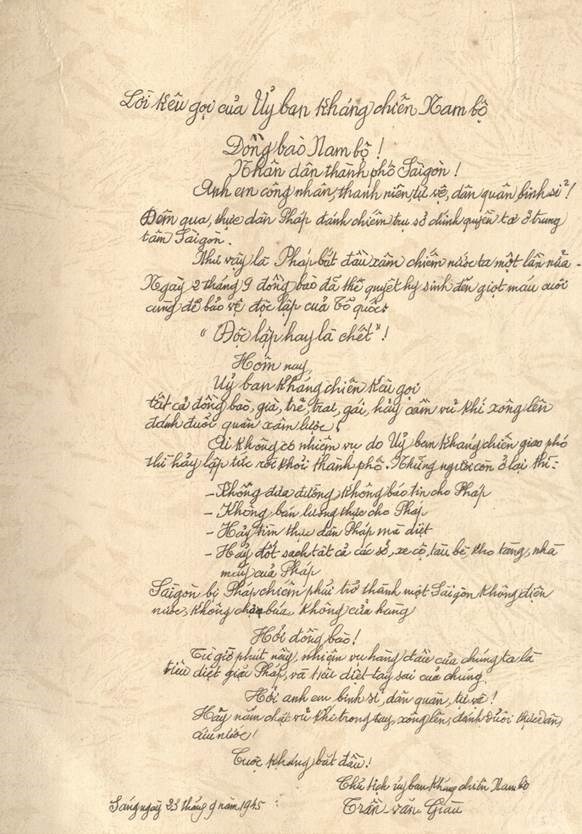 Lời kêu gọi của Ủy ban kháng chiến Nam bộ
Đồng bào Nam bộ !
Nhân dân thành phố Sàigòn !
Anh em công nhân, thanh niên, tự vệ, dân quân, binh sĩ !
Đêm qua, thực dân Pháp đánh chiếm trụ sở chính quyền ta ở trung
tâm Sàigòn.
Như vậy là Pháp bắt đầu xâm chiếm nước ta một lần nữa.
Ngày 2 tháng 9 đồng bào đã thề quyết hy sinh đến giọt máu cuối
cùng để bảo vệ độc lập của Tổ quốc:
“ Độc lập hay là chết ” !
Hôm nay,
Uỷ ban kháng chiến kêu gọi
tất cả đồng bào, già, trẻ, trai, gái, hãy cầm vũ khí xông lên
đánh đuổi quân xâm lược !
Ai không có nhiệm vụ do Uỷ ban kháng chiến giao phó
thì hãy lập tức rời khỏi thành phố. Những người còn ở lại thì:
- Không đưa đường không báo tin cho Pháp
- Không bán lương thực cho Pháp
- Hãy tìm thực dân Pháp mà diệt
- Hãy đốt sạch tất cả các sở, xe cộ, tàu bè, kho tàng, nhà
máy của Pháp
Sàigòn bị Pháp chiếm phải trở thành một Sàigòn không điện
nước, không chợ búa không cửa hàng
Hỡi đồng bào!
Từ giờ phút này, nhiệm vụ hàng đầu của chúng ta là
tiêu diệt giặc Pháp, và tiêu diệt tay sai của chúng.
Hỡi anh em binh sĩ, dân quân, tự vệ !
Hãy nắm chặt vũ khí trong tay, xông lên, đánh đuổi thực dân,
cứu nước !
Cuộc kháng bắt đầu !
Chủ tịch ủy ban kháng chiến Nam bộ
Sáng ngày 23 tháng 9 năm 1945
Trần văn Giàu